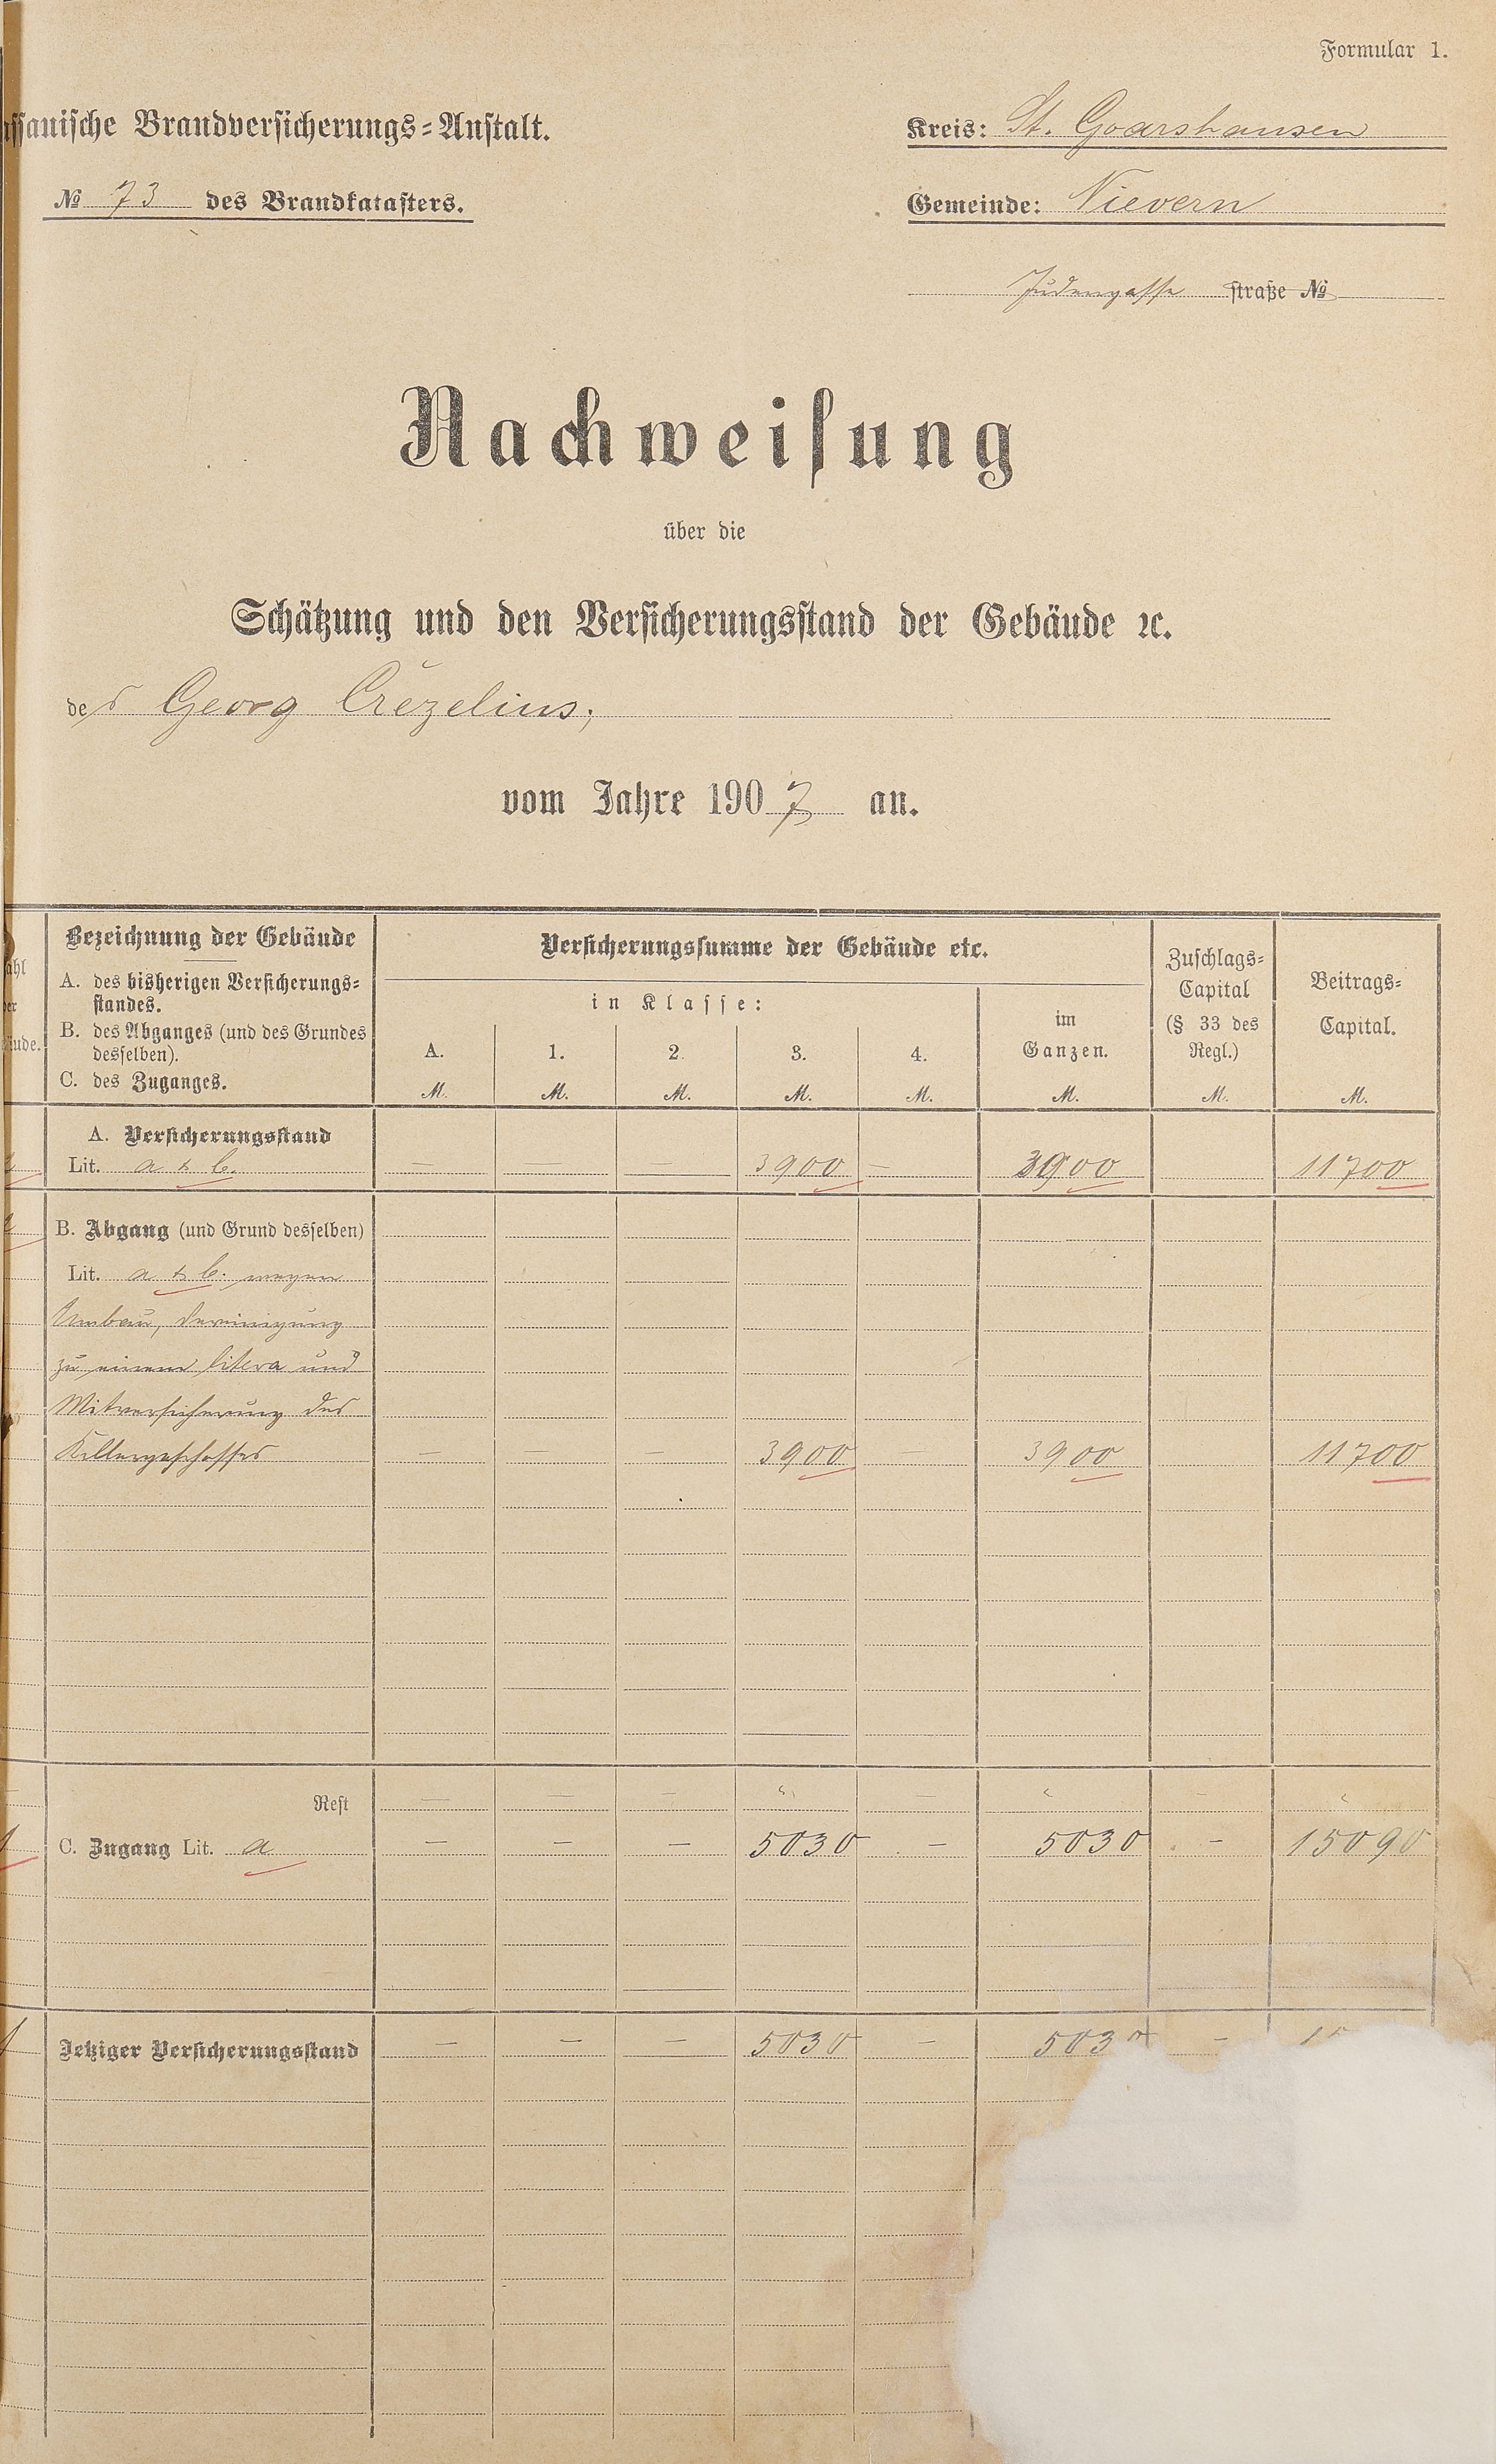 Formular 1.
ssauische Brandversicherungs=Anstalt.
Kreis: St. Goarshausen
№ 73 des Brandkatasters.
Gemeinde: Nievern
Judengasse straße №
Nachweisung
über die
Schätzung und den Versicherungsstand der Gebäude ꝛc.
des Georg Crézelius,
vom Jahre 1907 an.
ahl
der
äude.
Bezeichnung der Gebäude
A. des bisherigen Versicherungs=
standes.
B. des Abganges (und des Grundes
desselben).
C. des Zuganges.
Versicherungssumme der Gebäude etc.
in Klasse:
A. 1. 2. 3. 4.
im
Ganzen.
Zuschlags=
Capital
(§ 33 des
Regl.)
Beitrags=
Capital.
M. M. M. M. M. M. M. M.
A. Versicherungsstand
2 Lit. a & b. — — — 3900 — 3900 11700
2 B. Abgang (und Grund desselben)
Lit. a & b. wegen
Umbau, Vereinigung
zu einem litera und
Mitversicherung des
Kellergeschosses — — — 3900 — 3900 11700
Rest — — — — —
1 C. Zugang Lit. a — — — 5030 — 5030 — 15090
1 Jetziger Versicherungsstand — — — 5030 — 5030 — 15